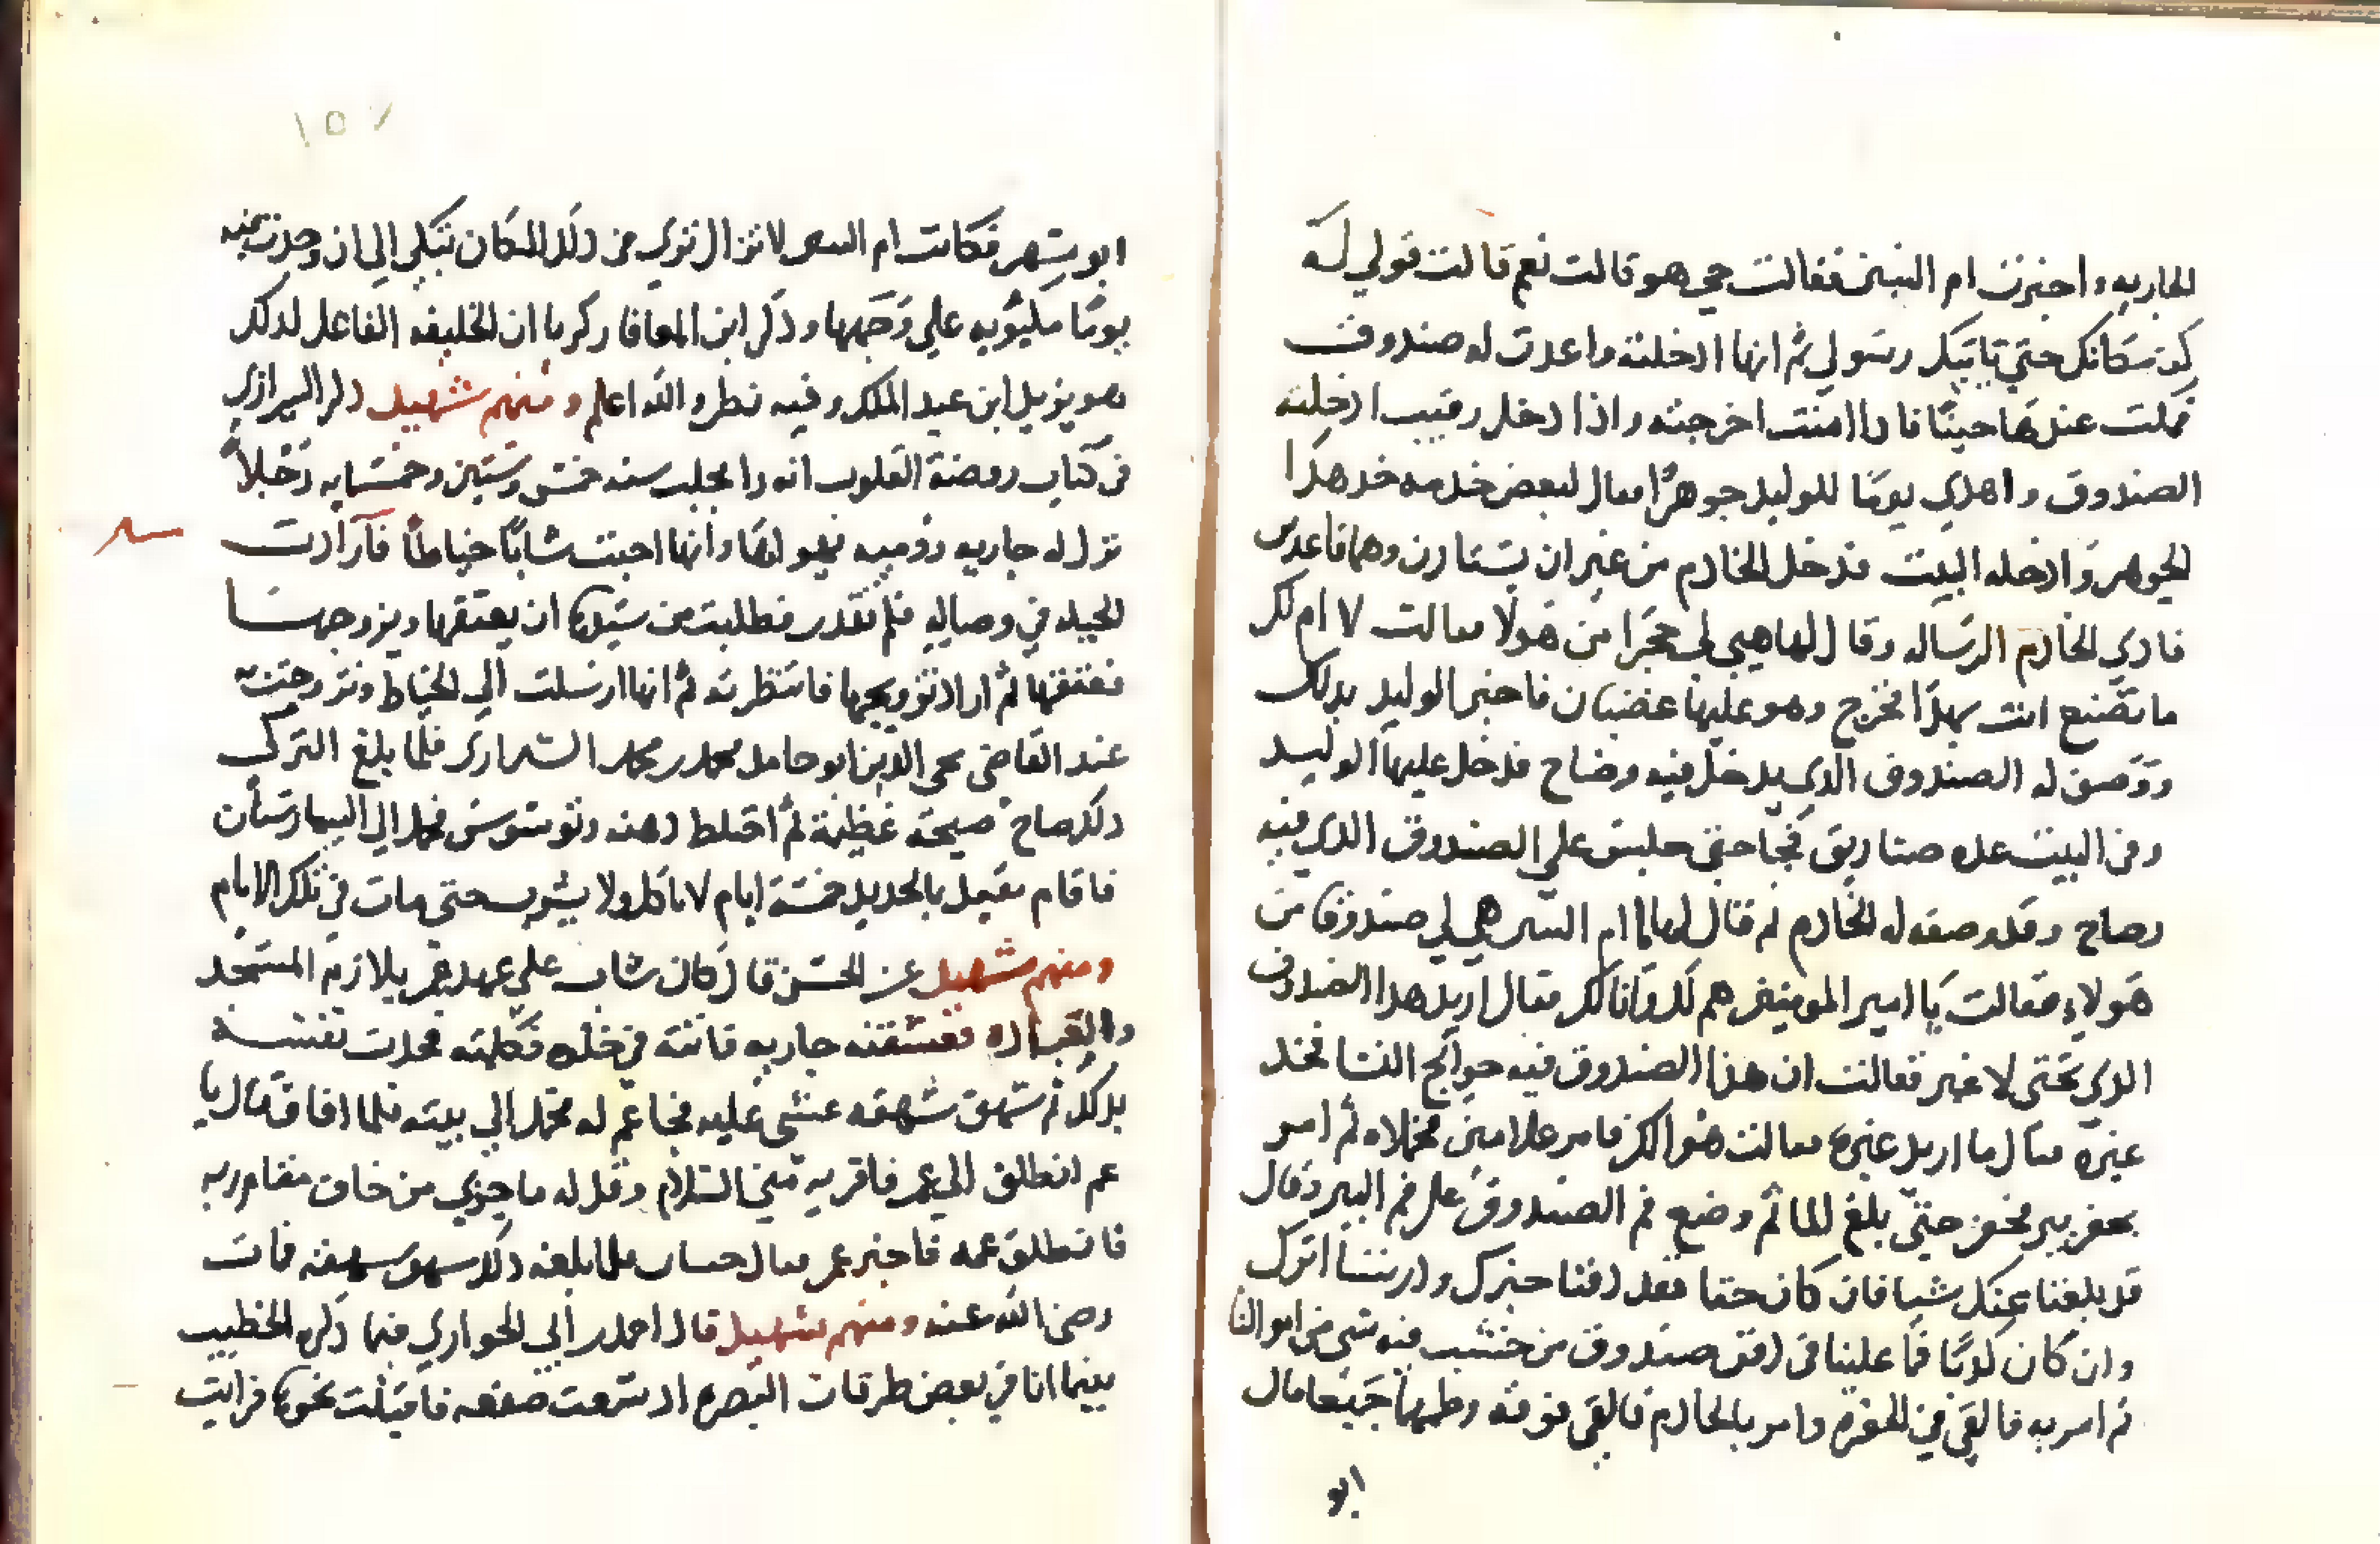 الجاريه واخبرت ام البنين فقالت حي هو قالت نعم قالت قولي له
كن مكانك حتي ياتيك رسولي ثم انها ادخلته واعدت له صندوق
فمكث عندها حينًا فاذا امنت اخرجته واذا دخل رقيب ادخلته
الصندوق واهدي يومًا للوليد جوهرًا فقال لبعض خدمه خد هدا
الجوهر وادخله البيت فدخل الخادم من غير ان يستاذن وهما قاعدين
فادي الخادم الرساله وقال لها هبي لي حجرًا من هولا فقالت لا ام لك
ما تصنع انت بهدا فخرج وهو عليها غضبان فاخبر الوليد بدلك
ووصف له الصندوق الدي يدخل فيه وضاح فدخل عليها الوليد
وفي البيت عده صناديق فجا حتي جلس علي الصندوق الدي فيه
وضاح وقد وصفه له الخادم ثم قال لها يا ام البنين هبي لي صندوقا من
هولاء فقالت يا امير المومنين هم لك وانا لك فقال اريد هدا الصندوق
الدي تحتي لا غير فقالت ان هذا الصندوق فيه حوايج النسا فخد
غيره فقال ما اريد غيره فقالت هو لك فامر غلامين فحملاه ثم امر
بحفر بير فحفر حتي بلغ الما ثم وضع فم الصندوق علي فم البير وقال
قد بلغنا عنك شيا فان كان حقا فقد دفنا خبرك ودرسنا اثرك
وان كان كدبًا فما علينا في دفن صندوق من خشب فيه شي من امر النسا
ثم امر به فالقي في الحفره وامر بالخادم فالقي فوقه وطمها جميعا قال
ابو
١٥٧
ابو شهر فكانت ام البنين لا تزال تري في دلك المكان تبكي الي ان وجدت فيه
يومًا مكبوبه علي وجهها ودكر ابن المعافا زكريا ان الخليفه الفاعل لدلك
هو يزيد ابن عبد الملك وفيه نظر والله اعلم ومنهم شهيد دكر الشيرازي
في كتاب روضة القلوب انه راي بحلب سنه خمس وستين وخمسمايه رجلاً
تركي له جاريه روميه يهواها وانها احبت شابًا خياطًا فارادت
الحيله في وصاله فلم تقدر فطلبت من سيدها ان يعتقها ويزوجها
فعتقها ثم اراد تزويجها فانتظرته ثم انها ارسلت الي الخياط وتزوجت به
عند القاضي محي الدين ابو حامد محمد بن محمد الشهرزوري فلما بلغ التركي
دلك صاح صيحة عظيمة ثم اختلط دهنه وتوسوس فحمل الي البيمارستان
فاقام مقيدًا بالحديد خمسة ايام لا ياكل ولا يشرب حتي مات في تلك الايام
ومنهم شهيد عن الحسن قال كان شاب علي عهد عمر يلازم المسجد
والعباده فعشقته جاريه فاتته في خلوه فكلمته فحدت نفسه
بدلك ثم شهق شهقه غشي عليه فجا عم له فحمله الي بيته فلما افاق قال يا
عم انطلق الي عمر فاقريه مني السلام وقل له ما جزي من خاف مقام ربه
فانطلق عمه فاخبر عمر فقال جنتان فلما بلغه دلك شهق شهقه فمات
رضي الله عنه ومنهم شهيد قال احمد بن ابي الحواري فيما دكره الخطيب
بينما انا في بعض طرقات البصره اد سمعت صعقه فاقبلت نحوها فرايت